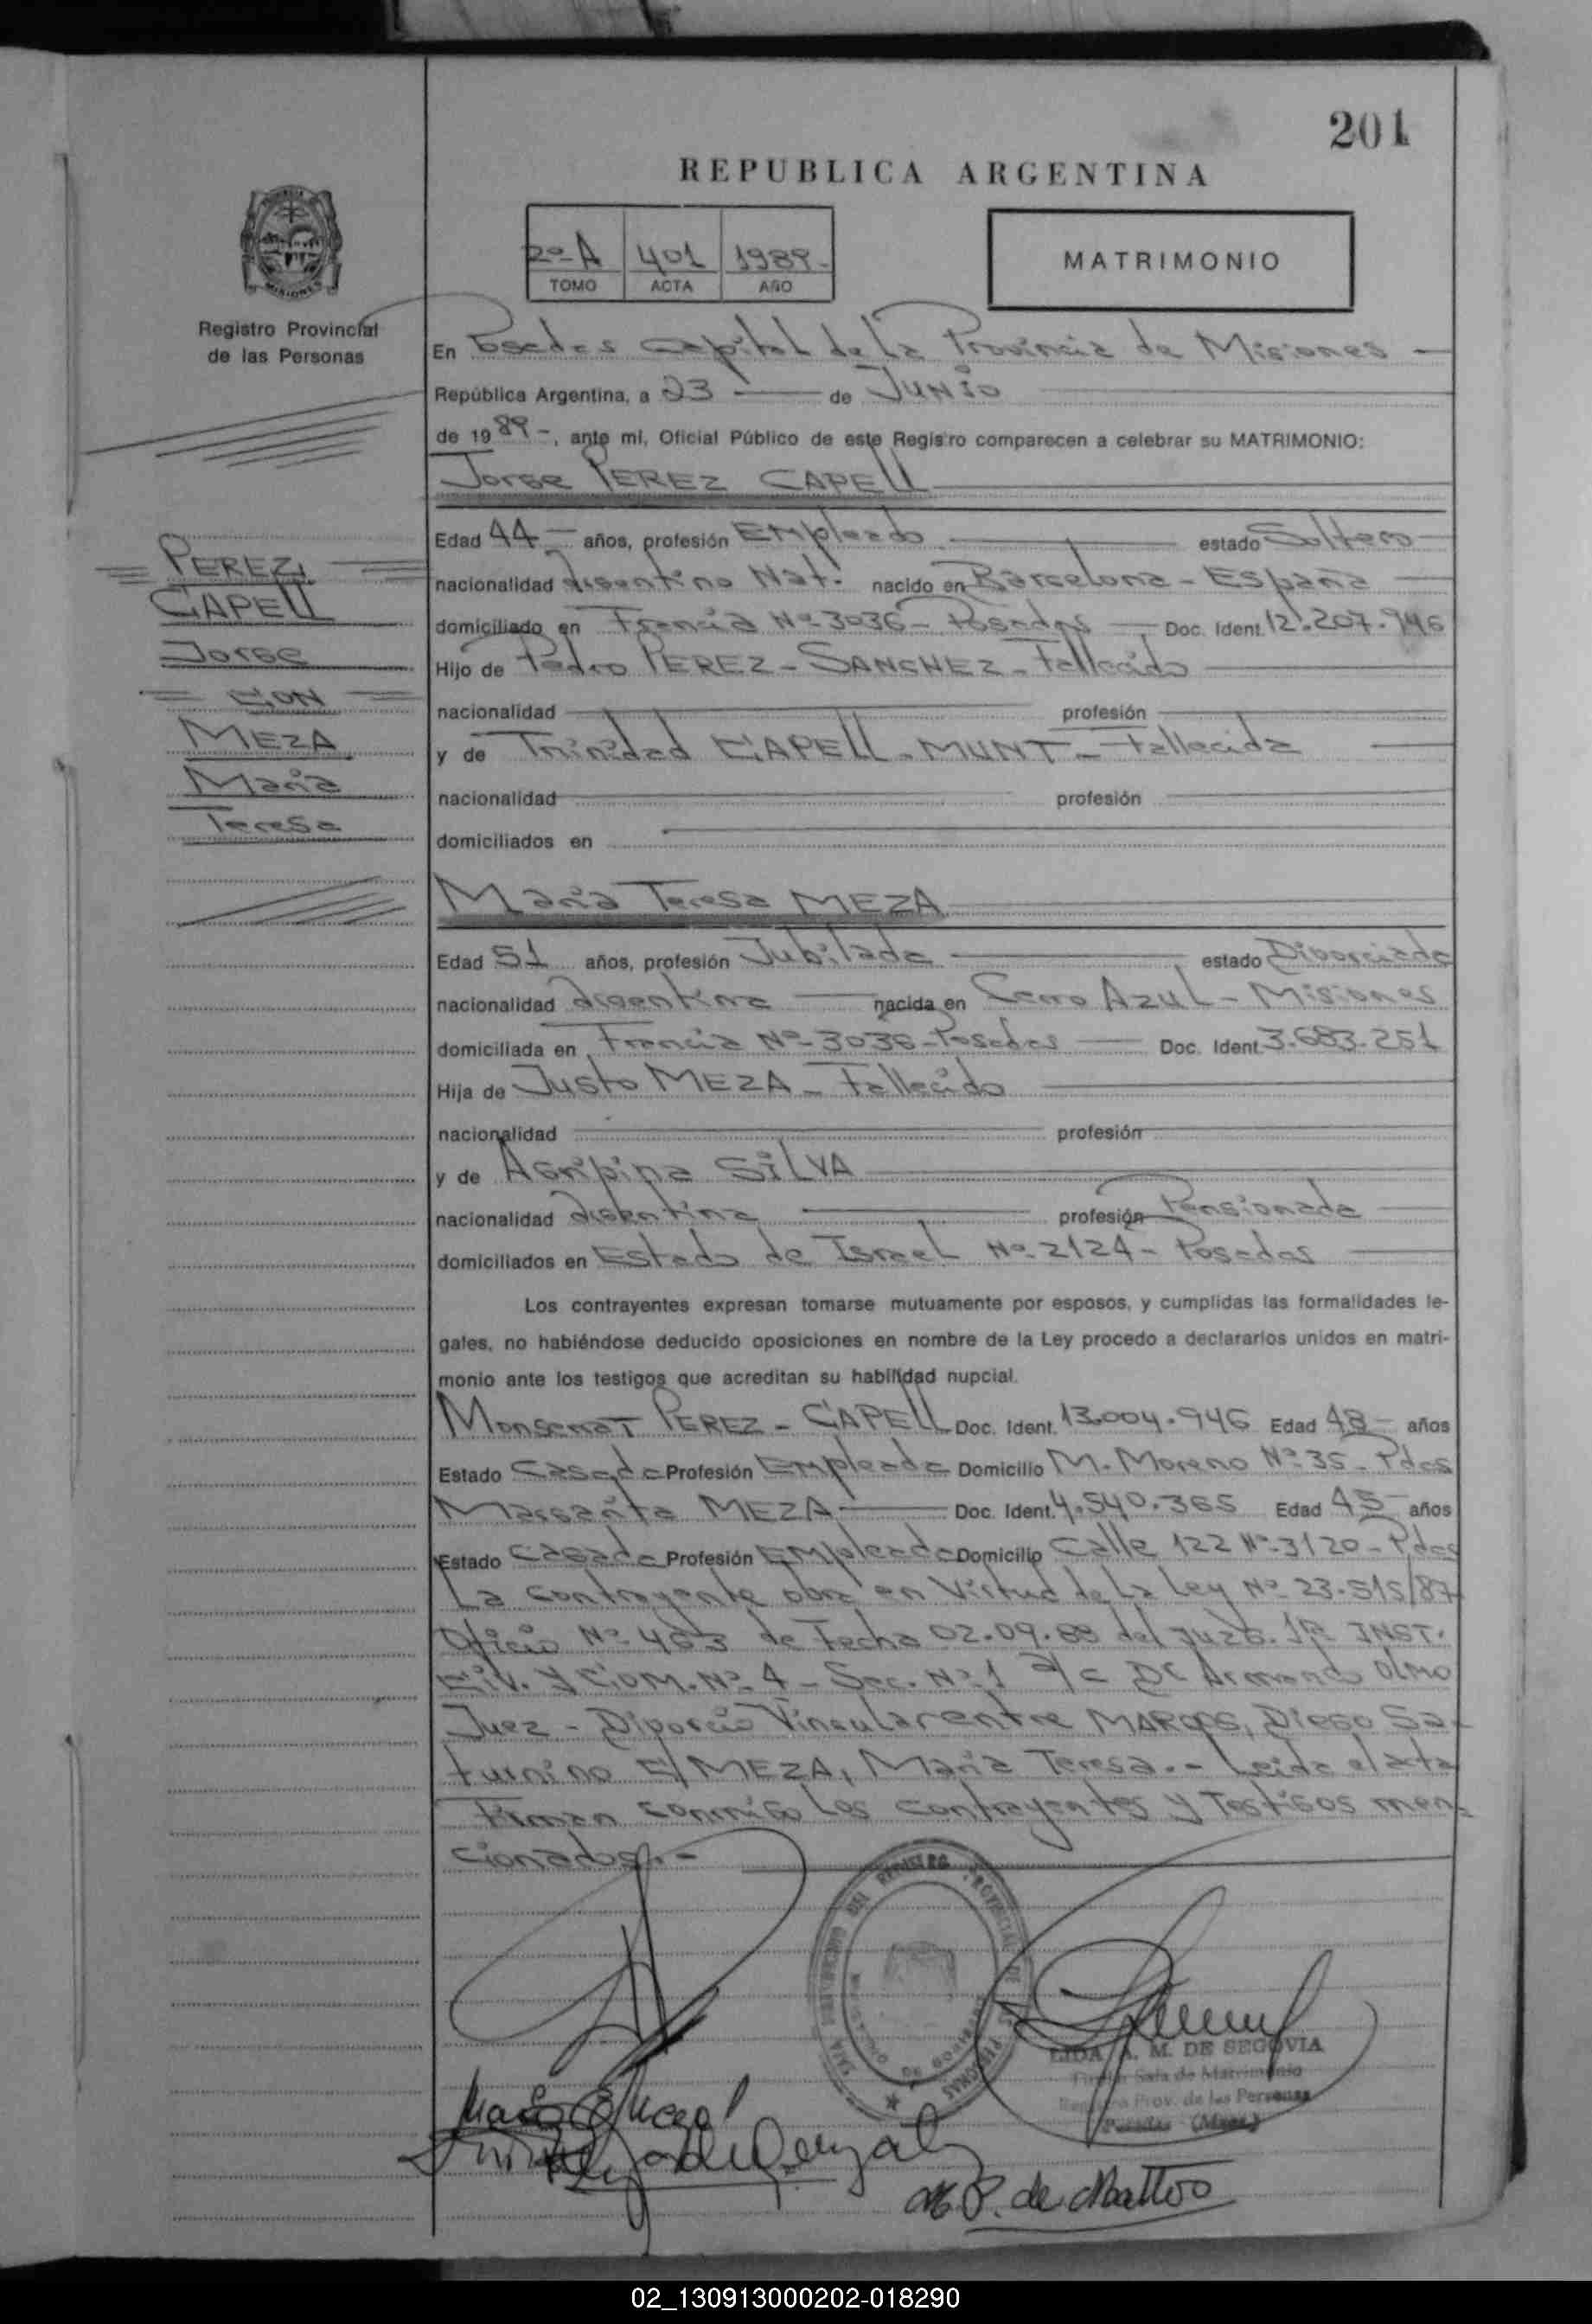 201
REPUBLICA ARGENTINA
2º A 401 1989.-
TOMO ACTA AÑO
MATRIMONIO
MISIONES
Registro Provincial
de las Personas
En Posadas Capital de la Provincia de Misiones -
República Argentina, a 23 — de Junio
de 1989-, ante mí, Oficial Público de este Registro comparecen a celebrar su MATRIMONIO:
Jorge PEREZ CAPELL
Edad 44- años, profesión Empleado estado Soltero
nacionalidad Argentino Nat. nacido en Barcelona - España
domiciliado en Francia Nº 3036 - Posadas - Doc. Ident. 12.207.946
Hijo de Pedro PEREZ - SANCHEZ - Fallecido
nacionalidad profesión
y de Trinidad CAPELL - MUNT - Fallecida
nacionalidad profesión
domiciliados en
PEREZ
CAPELL
Jorge
= CON =
MEZA
Maria
Teresa
Maria Teresa MEZA
Edad 51 años, profesión Jubilada estado Divorciada
nacionalidad Argentina - nacida en Cerro Azul - Misiones
domiciliada en Francia Nº 3036 - Posadas - Doc. Ident. 3.683.251
Hija de Justo MEZA - Fallecido
nacionalidad profesión
y de Agripina SILVA
nacionalidad Argentina profesión Pensionada
domiciliados en Estado de Israel Nº 2124 - Posadas
Los contrayentes expresan tomarse mutuamente por esposos, y cumplidas las formalidades le-
gales, no habiéndose deducido oposiciones en nombre de la Ley procedo a declararlos unidos en matri-
monio ante los testigos que acreditan su habilidad nupcial.
Monserrat PEREZ - CAPELL Doc. Ident. 13.004.946 Edad 48- años
Estado Casada Profesión Empleada Domicilio M. Moreno Nº 35 - Pdas
MEZA Doc. Ident. 4.540.365 Edad 45 años
Estado Casada Profesión Empleada Domicilio Calle 122 Nº 3120 - Pdas
La contrayente obra en Virtud de La Ley Nº 23.515/87
Oficio Nº 463 de Fecha 02.09.88 del Juzg. 1ra INST.
CIV. y COM. Nº 4 - Sec. Nº 1 a/c Dr Armando Olmo
Juez - Divorcio Vincular entre MARCOS, Diego Sa-
turnino C/ MEZA, Maria Teresa.- Leida el acta
Firman conmigo Los contrayentes y Testigos men-
cionados.-
LIDA A. M. DE SEGOVIA
Sala de Matrimonio
Registro Prov. de las Personas
Posadas (Mnes.)
02_130913000202-018290